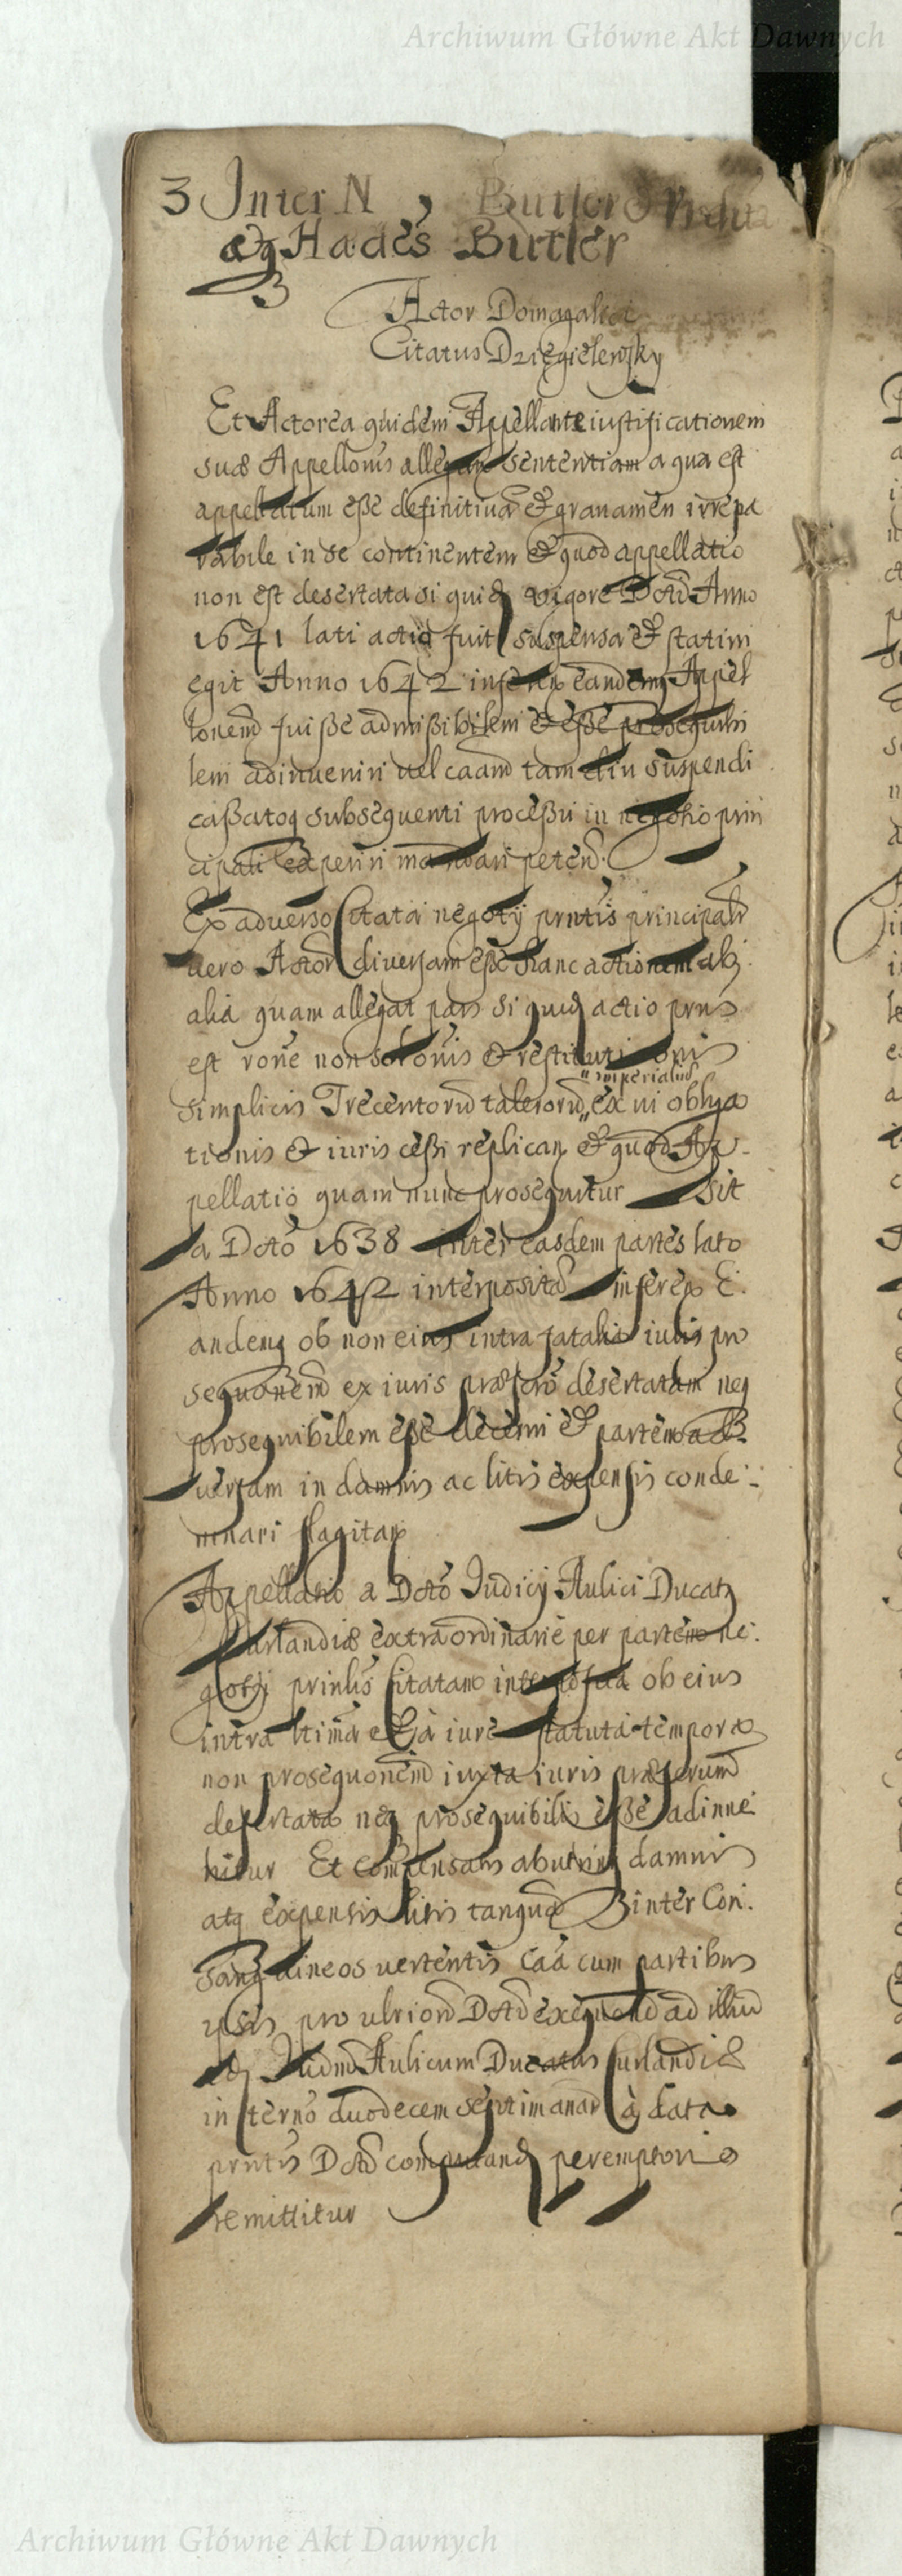 Archiwum Główne Akt Dawnych
3 Inter N , Butler &
Hades Butler
Actor Domagalski
Citatus Dziegielewsky
Et Actorea quidem Appellante iustificationem
suæ Appellonis sententiam a qua est
appellatum eße definitiuã & grauamen irrepa
rabile in se continentem & quod appellatio
non est desertata siquid vigore Dcti Anno
1641 lati actio fuit suspensa & statim
egit Anno 1642 eandemq Appel
lonem fuiße admißibilem & eße prosequibi
lem adinueniri vel caam tam diu suspendi
caßatoq subsequenti proceßu in negotio prin
cipali experiri mandari peten.
Ex aduerso Citata negoty prntis principalr
uero Actor diuersam eße hanc actionem ab
alia quam allegat pars siquid actio prns
est rone non solonis & restituti onis
"imperialiũ
simplicis Trecentorũ talerorũ„ ex ui obliga
tionis & iuris ceßi replican & quod Ap-
pellatio quam nunc prosequitur sit
a Dcto 1638 inter easdem partes lato
Anno 1642 interposita E.
andemq ob non eius intra fatalia iuris pro
sequonem ex iuris præscro desertatam neq
prosequibilem eße decerni & partem ad
uersam in damnis ac litis expensis conde
mnari flagitan
Appellatio a Dcto Iudicij Aulici Ducatg
Curlandiæ extraordinarie per partem ne.
gotij prinlis Citatam ob eius
intra ltima à iure statuta tempora
non prosequonem iuxta iuris præscrum
desertata neq prosequibilis eße adinue.
nitur Et compensatis abutrinq damnis
atq expensis litis tanquã inter Con.
sanguineos uertentis Caa cum partibus
ipsis pro ulriori Dcti exequond ad illud
idq Iudm Aulicum Ducatus Curlandiæ
in terno duodecem septimanarũ à data
prntis Dcti computand peremptorie
remittitur
Archiwum Główne Akt Dawnych